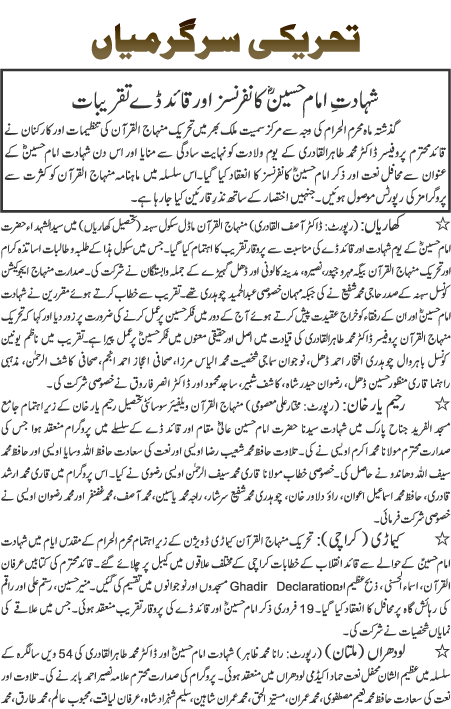 تحریکی سرگرمیاں
شہادتِ امام حسینؓ کانفرنسز اور قائد ڈے تقریبات
گذشتہ ماہ محرم الحرام کی وجہ سے مرکز سمیت ملک بھر میں تحریک منہاج القرآن کی تنظیمات اور کارکنان نے
قائد محترم پروفیسر ڈاکٹر محمد طاہرالقادری کے یوم ولادت کو نہایت سادگی سے منایا اور اس دن شہادت امام حسینؓ کے
عنوان سے محافل نعت اور ذکر امام حسینؓ کانفرنسز کا انعقاد کیا گیا۔ اس سلسلہ میں ماہنامہ منہاج القرآن کو کثرت سے
پروگرامز کی رپورٹس موصول ہوئیں۔ جنہیں اختصار کے ساتھ نذر قارئین کیا جا رہا ہے۔
☆ کھاریاں: (رپورٹ: ڈاکٹر آصف القادری) منہاج القرآن ماڈل سکول سہنہ (تحصیل کھاریاں) میں سید الشہداء حضرت
امام حسینؓ کے یوم شہادت اور قائد ڈے کی مناسبت سے پروقار تقریب کا اہتمام کیا گیا۔ جس میں سکول ہذا کے طلبہ و طالبات اساتذہ کرام
اور تحریک منہاج القرآن بیگہ مہرو چپور، نصیرہ، مدینہ کالونی اور ڈھل گہیڑے کے جملہ وابستگان نے شرکت کی۔ صدارت منہاج ایجوکیشن
کونسل سہنہ کے صدر حاجی محمد شفیع نے کی جبکہ مہمان خصوصی عبدالحمید چوہدری تھے۔ تقریب سے خطاب کرتے ہوئے مقررین نے شہادت
امام حسینؓ اور ان کے رفقاء کو خراج عقیدت پیش کرتے ہوئے آج کے دور میں فکر حسینؓ پر عمل کرنے کی ضرورت پر زور دیا اور کہا کہ تحریک
منہاج القرآن پروفیسر ڈاکٹر محمد طاہرالقادری کی قیادت میں اصل اور حقیقی معنوں میں فکر حسینؓ پر عمل پیرا ہے۔ تقریب میں ناظم یونین
کونسل باہروال چوہدری افتخار احمد ڈھل، نوجوان سماجی شخصیت محمد الیاس مرزا، صحافی اعجاز احمد انجم، صحافی کاشف الرحمٰن، مذہبی
راہنما قاری منظور حسین ڈھل، رضوان حیدر شاہ، کاشف شبیر، ساجد محمود اور ڈاکٹر انصر فاروق نے خصوصی شرکت کی۔
☆ رحیم یار خان: (رپورٹ: مختار علی معصومی) منہاج القرآن ویلفیئر سوسائٹی تحصیل رحیم یار خان کے زیر اہتمام جامع
مسجد الفرید جناح پارک میں شہادت سیدنا حضرت امام حسین عالی مقام اور قائد ڈے کے سلسلے میں پروگرام منعقد ہوا جس کی
صدارت محترم مولانا محمد اکرم اویسی نے کی۔ تلاوت حافظ محمد شعیب رضا اویسی اور نعت کی سعادت حافظ اللہ وسایا اویسی اور حافظ محمد
سیف اللہ دھاندو نے حاصل کی۔ خصوصی خطاب مولانا قاری محمد سیف الرحمٰن اویسی رضوی نے کیا۔ اس پروگرام میں قاری محمد ارشد
قادری، حافظ محمد اسماعیل اعوان، راؤ دلاور خان، چوہدری محمد شفیع سرشار، راجہ محمد یاسین، محمد آصف، محمد غضنفر اور محمد رضوان اویسی نے
خصوصی شرکت فرمائی۔
☆ کیماڑی (کراچی): تحریک منہاج القرآن کیماڑی ڈویژن کے زیر اہتمام محرم الحرام کے مقدس ایام میں شہادت
امام حسینؓ کے حوالے سے قائد انقلاب کے خطابات کراچی کے مختلف علاقوں میں کیبل پر چلائے گئے۔ قائد محترم کی کتابیں عرفان
القرآن، اسماء الحسنیٰ، ذبح عظیم اور Ghadir Declaration مسجدوں اور نوجوانوں میں تقسیم کی گئیں۔ منیر حسین، رستم علی اور راقم
کی رہائش گاہ پر محافل کا انعقاد کیا گیا۔ 19 فروری ذکر امام حسینؓ اور قائد ڈے کی پروقار تقریب منعقد ہوئی۔ جس میں علاقے کی
نمایاں شخصیات نے شرکت کی۔
☆ لودھراں (ملتان): (رپورٹ: رانا محمد ظاہر) شہادت امام حسینؓ اور ڈاکٹر محمد طاہرالقادری کی 54 ویں سالگرہ کے
سلسلہ میں عظیم الشان محفل نعت حماد اکیڈمی لودھراں میں منعقد ہوئی۔ پروگرام کی صدارت محترم علامہ نصیر احمد بابر نے کی۔ تلاوت اور
نعت کی سعادت حافظ محمد نعیم مصطفوی، محمد عمران، مستیز الحق، محمد عمران شاہین، سلیم شہزاد شاہ، عرفان لیاقت، محبوب عالم، محمد طارق، محمد